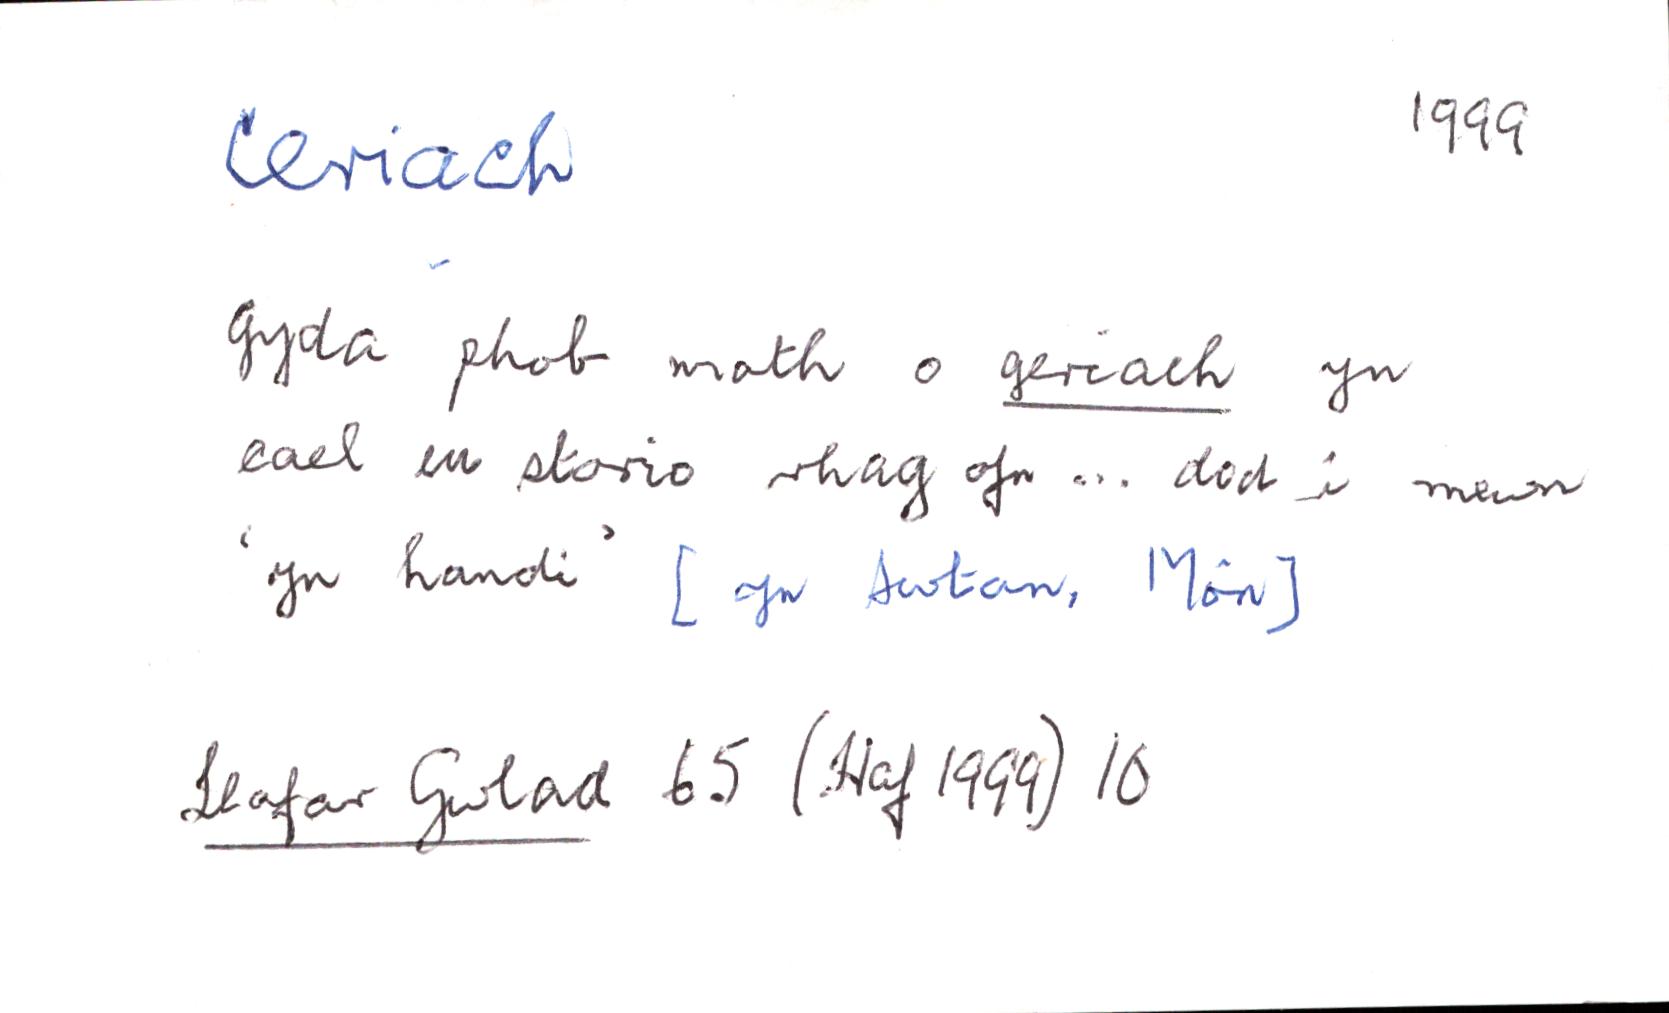 Ceriach
1999
Gyda phob math o geriach yn
cael eu storio rhag ofn ... dod i mewn
‘yn handi’ [yn Swtan, Môn]
Llafar Gwlad 65 (Haf 1999) 10